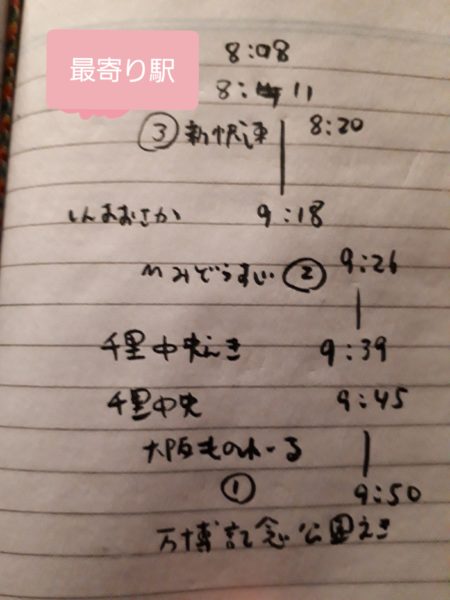 8:08
最寄り駅
8:11
③新快速 8:20
しんおおさか 9:18
みどうすじ ② 9:26
千里中央えき 9:39
千里中央 9:45
大阪ものれーる
① 9:50
万博記念公園えき